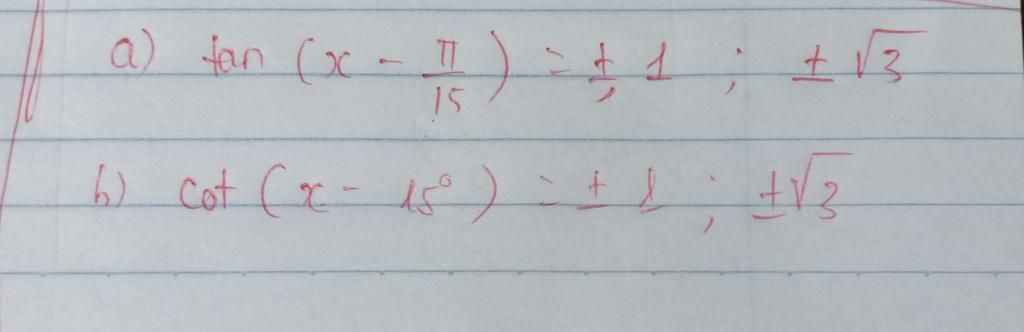 a) tan (x - π/15) = ± 1 ; ± √3
b) cot (x - 15°) = ± 1 ; ± √3